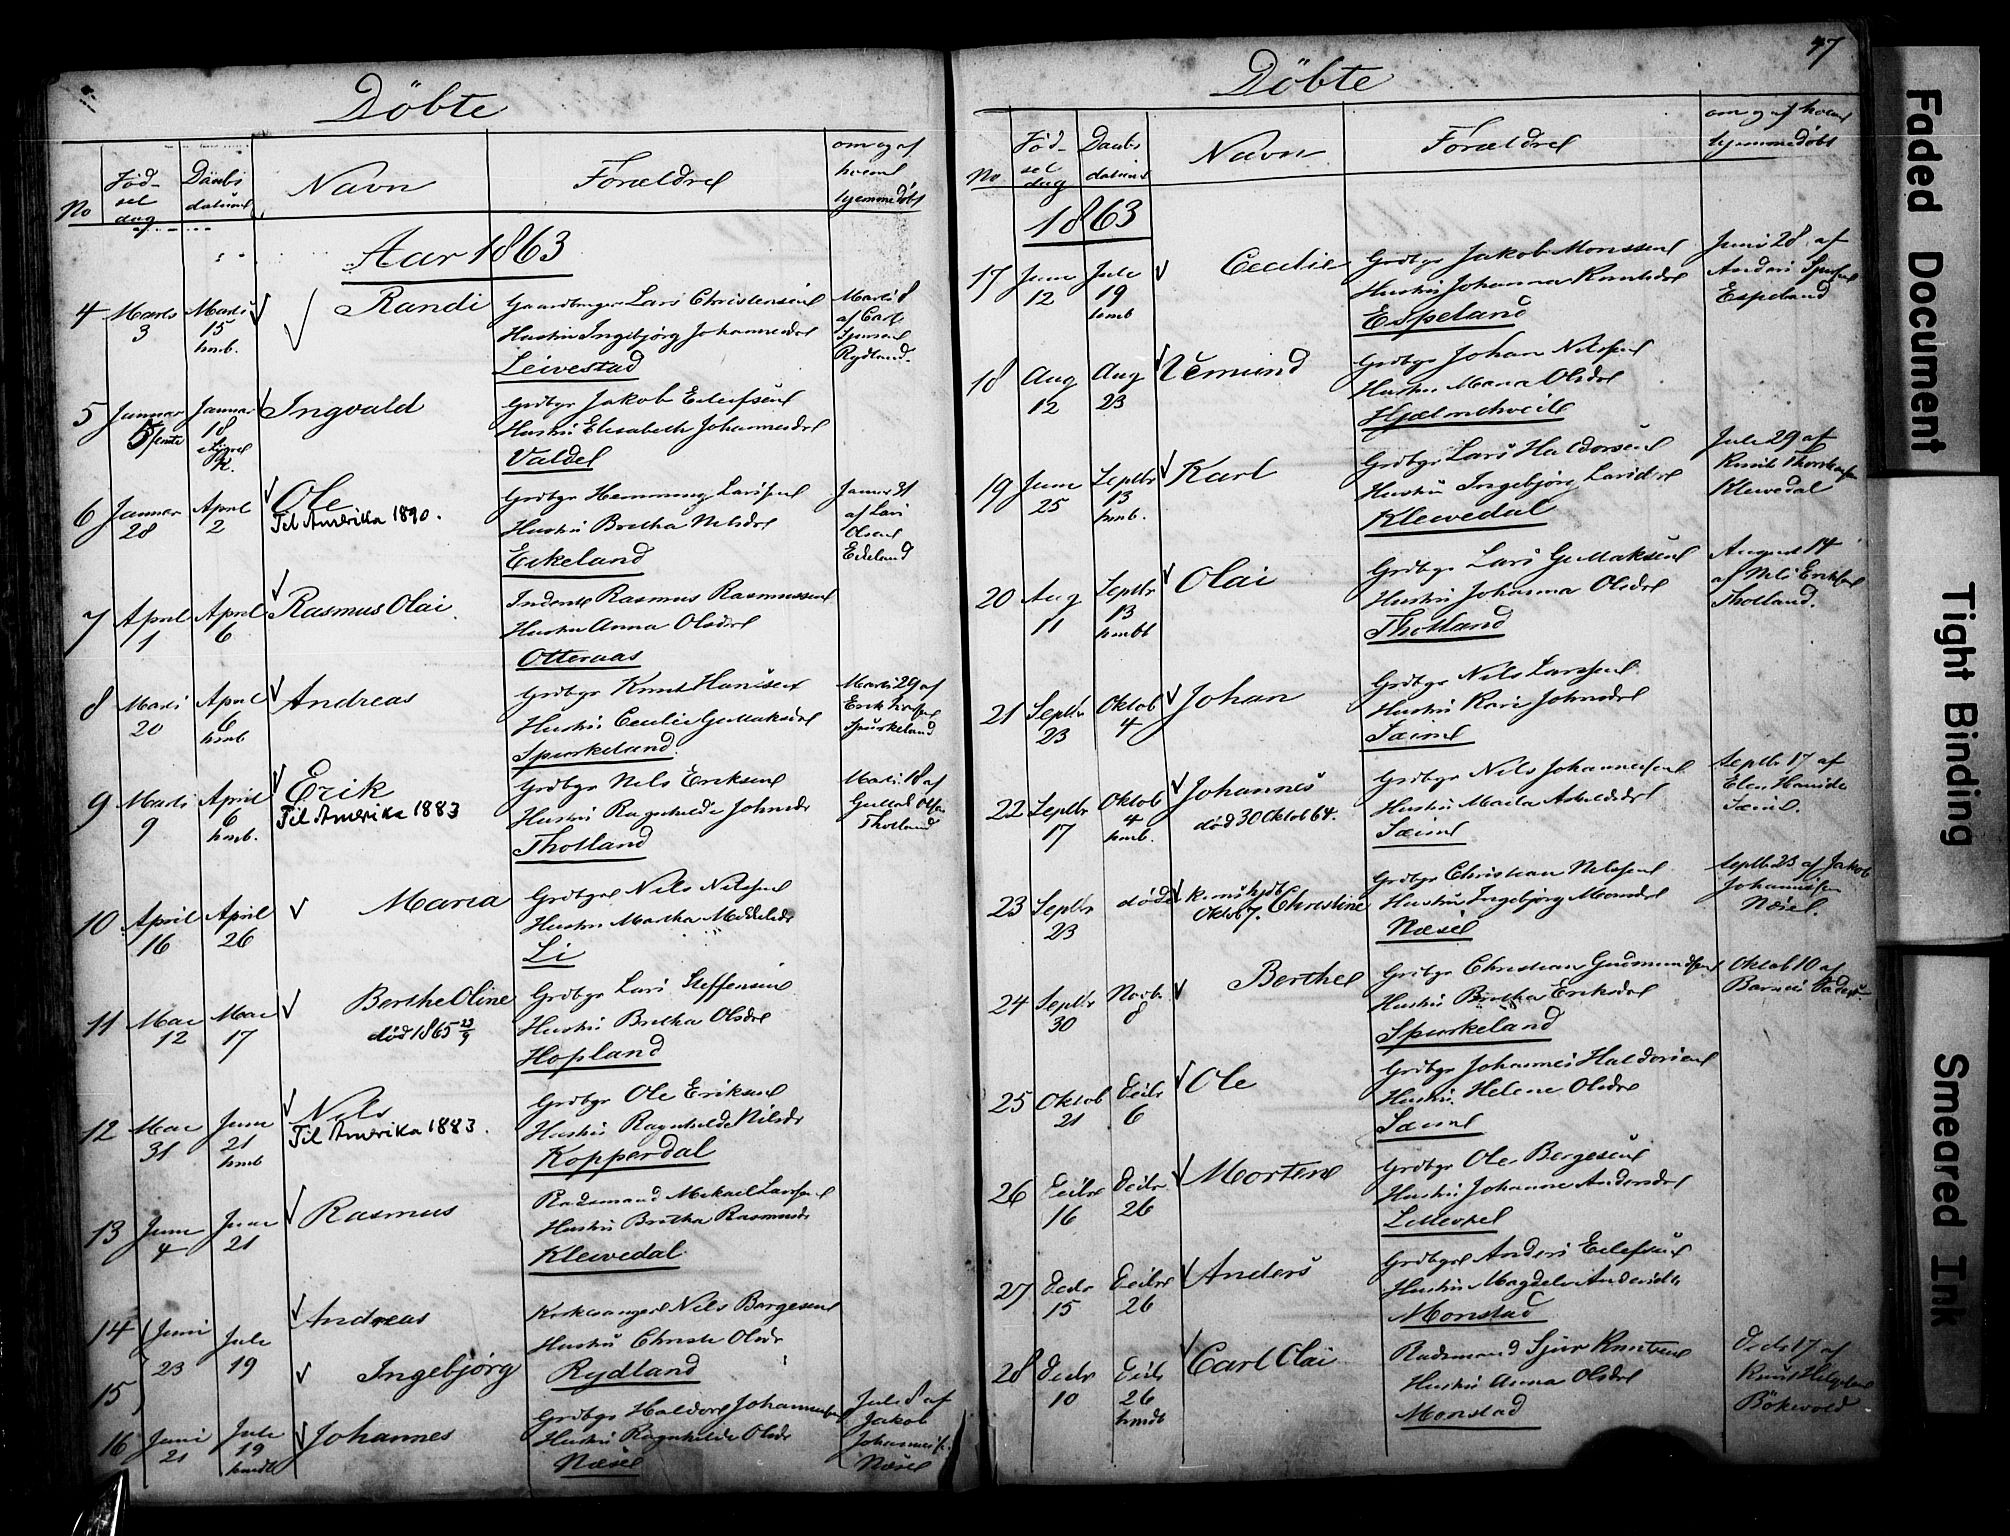 Döbte
No
Fød-
sel
dag
Daabs
datum
Navn
Forældre
om og af
hvem
hjemmedøbt
Aar 1863
4
Marts
3
Marts
15
hmb.
Randi
Gaardbruger Lars Christensen
Hustru Ingebjørg Johannesdr
Leivestad
Marts 8
af Carl
Rydland.
5
Januar
5
Januar
18
Ingvald
Grdbgr Jakob Eilefsen
Hustru Elisabeth Johannesdr
Valdel
6
Januar
28
April
2
Ole
Til Amerika 1890.
Grdbgr Hemming Larssen
Hustru Bretha Nelsdr
Eikeland
Januar 31
af Lars
Olsen
Eikeland
7
April
1
April
6
Rasmus Olai.
Inderst Rasmus Rasmussen
Hustru Anna Olsdr
Otteraas
8
Marts
20
April
6
hmb
Andreas
Grdbgr Knut Hansen
Hustru Cecilie Gullaksdr
Spurkeland.
Marts 29 af
Erik
Spurkeland
9
Marts
9
April
6
hmb.
Erik
Til Amerika 1883
Grdbgr Nils Eriksen
Hustru Ragnhilde Johnsdr
Thotland
Marts 18 af
Thotland
10
April
16
April
26
Maria
Grdbgr Nils Nilssen
Hustru Martha
Li
11
Mai
12
Mai
17
Berthe Oline
død 1865 23/9
Grdbgr Lars Steffensen
Hustru Bretha Olsdr
Hopland
12
Mai
31
Juni
21
hmb
Nils
Til Amerika 1883.
Grdbgr Ole Eriksen
Hustru Ragnhilde Nilsdr
Kopperdal
13
Juni
4
Juni
21
Rasmus
Mikael Larssen
Hustru Bretha Rasmusdr
Klevedal
14
Juni
23
Juli
19
Andreas
Nils Børgesen
Hustru Christi Olsdr
15
Ingebjørg
Rydland
16
Juni
21
Juli
19
hmdb
Johannes
Grdbgr Haldor Johannessen
Hustru Ragnhilde Olsdr
Næsel
Juli 8 af
Jakob
Næsel
Döbte
77
No
Fød-
sel
dag
Daabs
datum
Navn
Forældre
om og af hvem
hjemmedøbt
1863
17
Juni
12
Juli
19
hmb
Cecilie
Grdbgr Jakob Monssen
Hustru Johanna Knutsdr
Espeland
Juni 28. af
Anders
Espeland
18
Aug
12
Aug
23
Vemund
Grdbgr Johan Nilssen
Hustru Maria Olsdr
19
Juni
25
Septbr
13
hmb.
Karl
Grdbgr Lars Haldorsen
Hustru Ingebjørg Larsdr
Klevedal
Juli 29 af
Klevedal
20
Aug
11
Septbr
13
Olai
Grdbgr Lars Gullaksen
Hustru Johanna Olsdr
Thotland
August 14
af Nils Eriksen
Thotland.
21
Septbr
23
Oktob
4
Johan
Grdbgr Nils Larssen
Hustru Kari Johnsdr
Sæim
22
Septbr
17
Oktob
4
hmb
Johannes
død 30 Oktob 64.
Grdbgr Nils Johannessen
Hustru Marta
Sæim
Septbr 17 af
Sæim.
23
Septbr
23
døde
kuns hjdbt
Oktob 7.
Christine
Grdbgr Christian Nilssen
Hustru Ingebjørg Monsdr
Næsel
Septb 23 af Jakob
Johannesen
Næsel.
24
Septbr
30
Novbr
8
Berthe
Grdbgr Christian Gudmundsen
Hustru Bretha Eriksdr
Spurkeland
Oktob 10 af
Barnets
25
Oktob
21
6
Ole
Grdbgr Johannes Haldorsen
Hustru Helene Olsdr
Sæim
26
16
26
Morten
Grdbgr Ole Børgesen
Hustru Johanne Andersdr
27
Decbr
15
26
Anders
Grdbgr Anders Eilefsen
Hustru Magdela Andersdr
Monstad
28
Decbr
10
26
hmdt
Carl Olai
Sjur Knutsen
Hustru Anna Olsdr
Monstad
Decbr 17 af
Knut Helgesen
Bökevold
Faded Document
Tight Binding
Smeared Ink